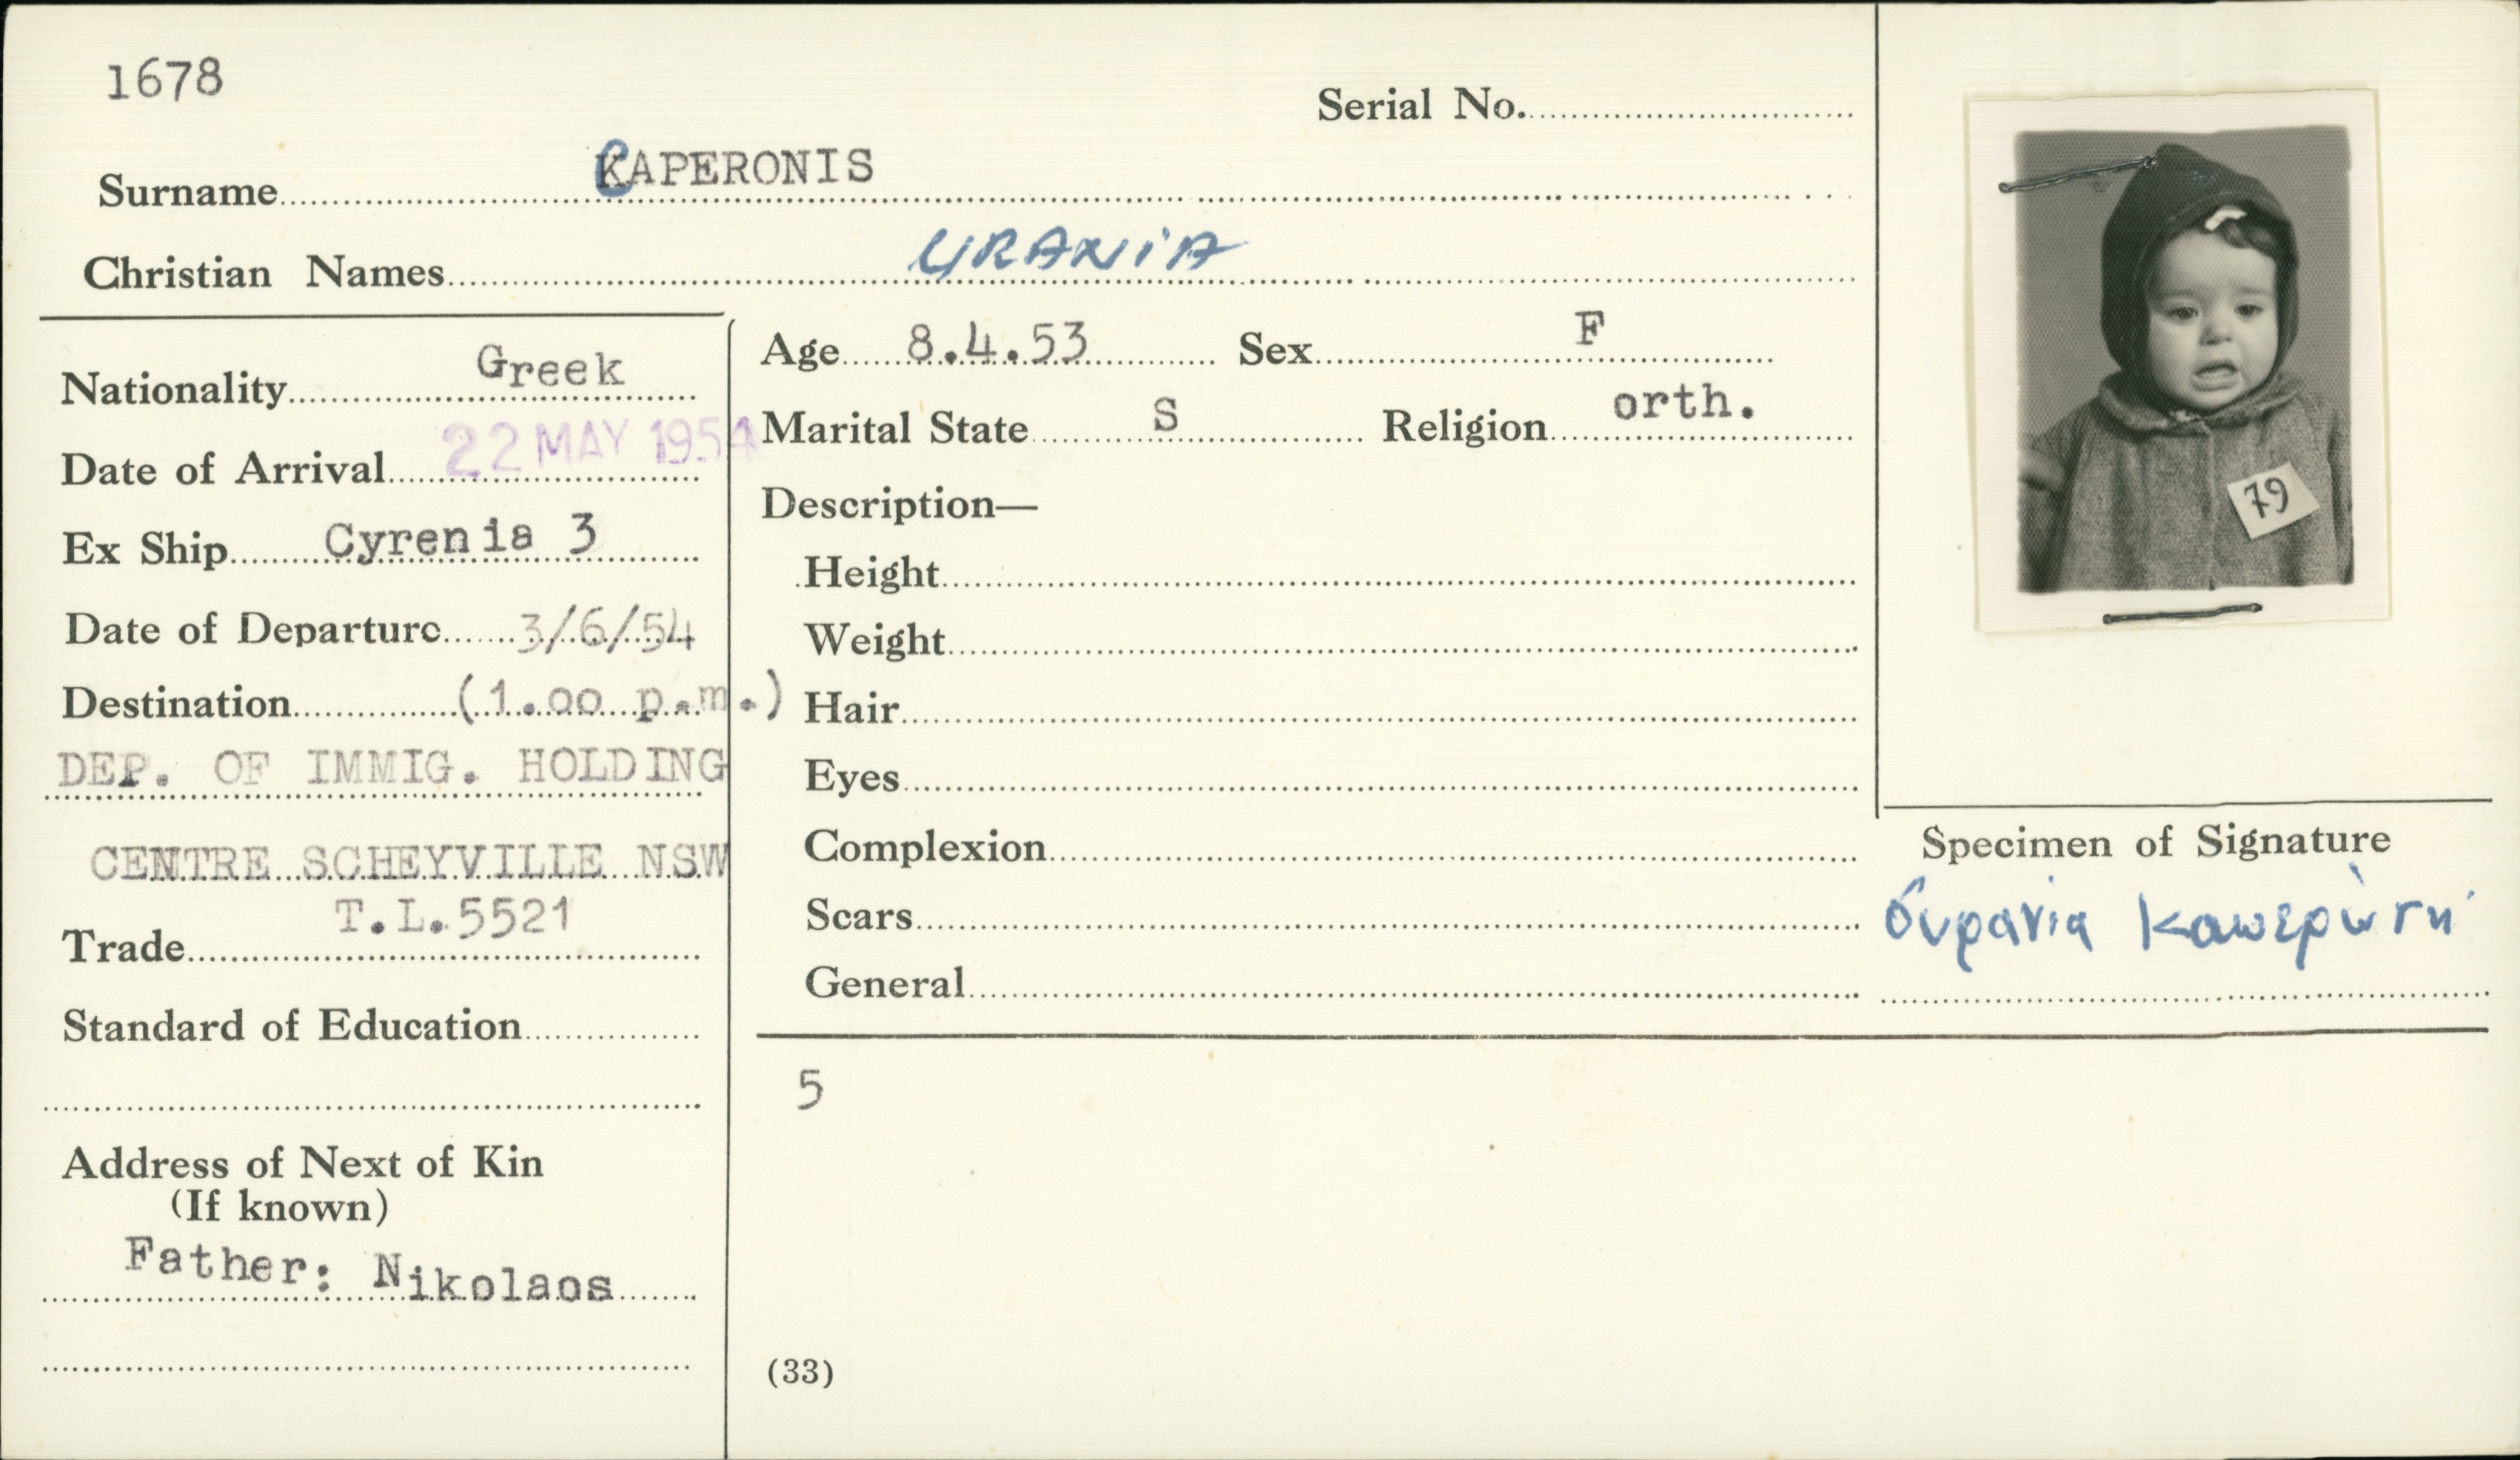 1678
Serial No.
Surname CAPERONIS
Christian Names URANIA
Nationality Greek
Age 8.4.53 Sex F
Date of Arrival 22 MAY 1954
Marital State S Religion orth.
Ex Ship Cyrenia 3
Description—
Date of Departure 3/6/54
Height
Weight
Destination (1.00 p.m.)
Hair
DEP. OF IMMIG. HOLDING
Eyes
CENTRE SCHEYVILLE NSW
Complexion
T.L.5521
Trade
Scars
Standard of Education
General
Address of Next of Kin
(If known)
Father: Nikolaos
5
(33)
79
Specimen of Signature
Ουρανία Καπερώνη